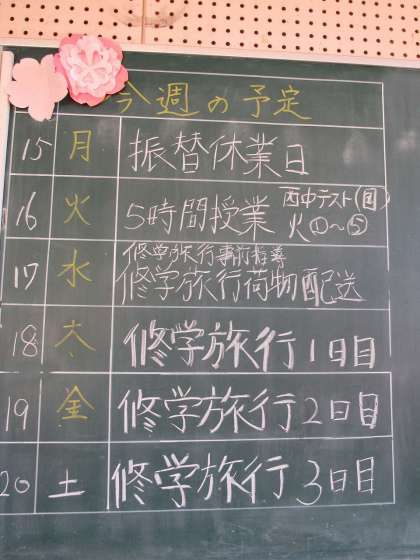 今週の予定
15 月 振替休業日
16 火 5時間授業 西中テスト(国)
火①~⑤
17 水 修学旅行事前指導
修学旅行荷物配送
18 木 修学旅行1日目
19 金 修学旅行2日目
20 土 修学旅行3日目